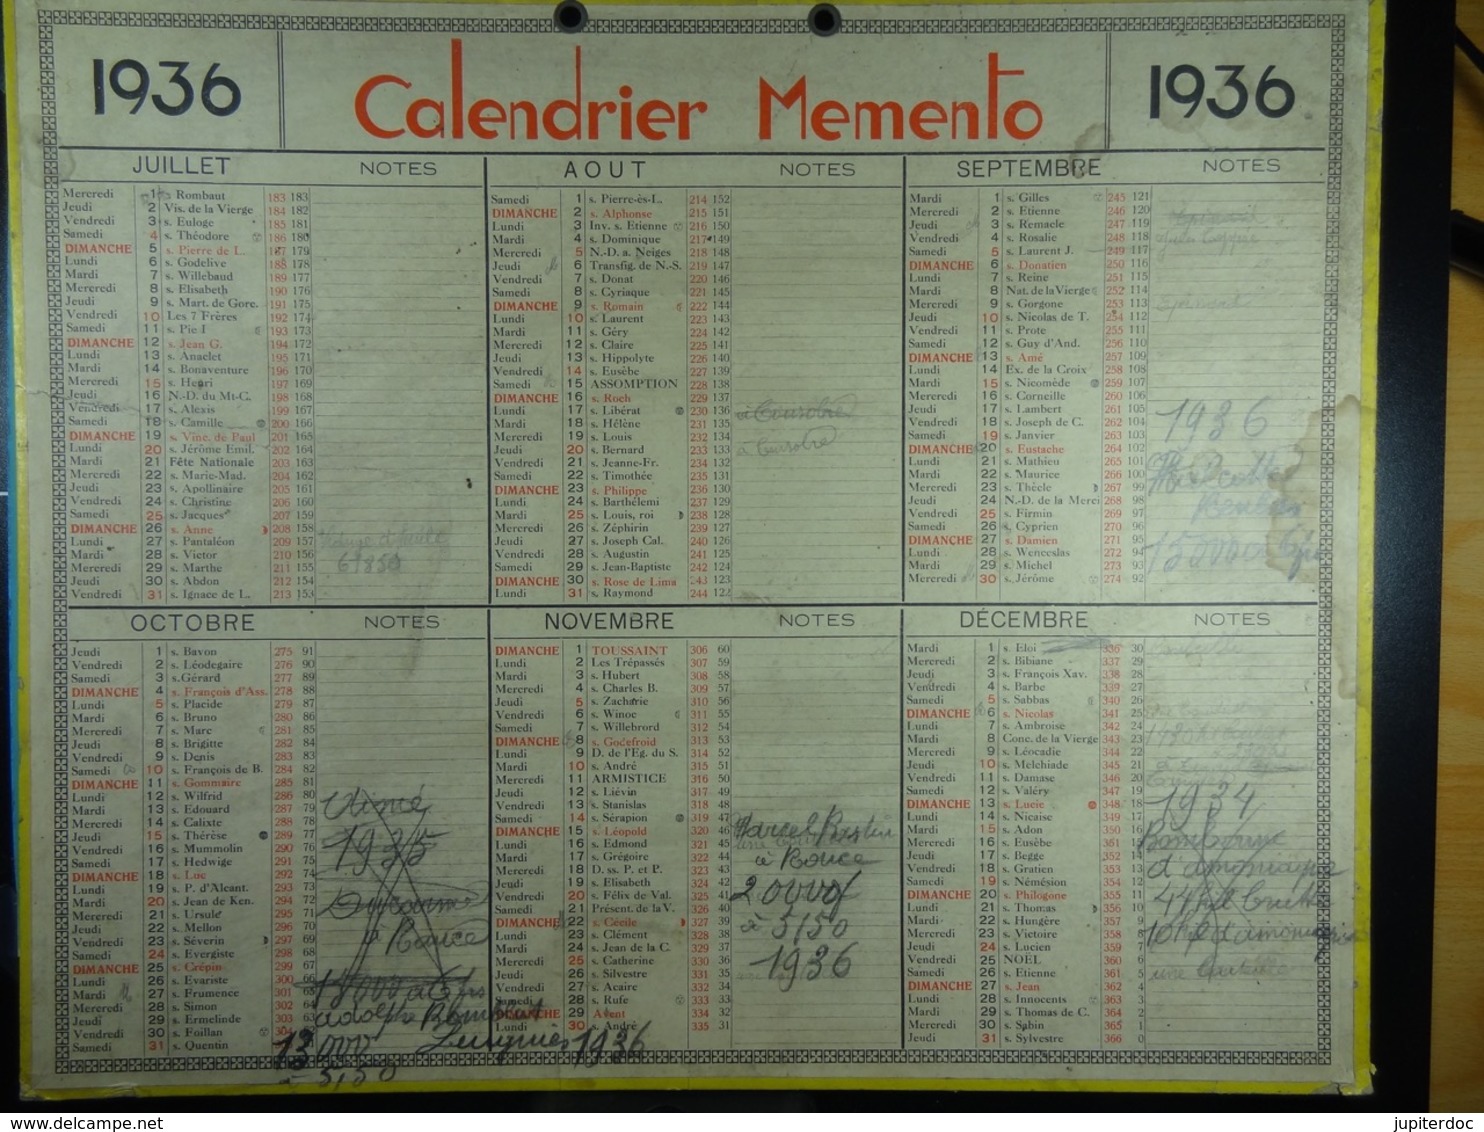 1936
Calendrier Memento
1936
JUILLET NOTES
Mercredi 1 s. Rombaut 183 183
Jeudi 2 Vis. de la Vierge 184 182
Vendredi 3 s. Euloge 185 181
Samedi 4 s. Théodore 186 180
DIMANCHE 5 s. Pierre de L. 187 179
Lundi 6 s. Godelive 188 178
Mardi 7 s. Willebaud 189 177
Mercredi 8 s. Elisabeth 190 176
Jeudi 9 s. Mart. de Gorc. 191 175
Vendredi 10 Les 7 Frères 192 174
Samedi 11 s. Pie I 193 173
DIMANCHE 12 s. Jean G. 194 172
Lundi 13 s. Anaclet 195 171
Mardi 14 s. Bonaventure 196 170
Mercredi 15 s. Henri 197 169
Jeudi 16 N.-D. du Mt-C. 198 168
Vendredi 17 s. Alexis 199 167
Samedi 18 s. Camille 200 166
DIMANCHE 19 s. Vinc. de Paul 201 165
Lundi 20 s. Jérôme Emil. 202 164
Mardi 21 Fête Nationale 203 163
Mercredi 22 s. Marie-Mad. 204 162
Jeudi 23 s. Apollinaire 205 161
Vendredi 24 s. Christine 206 160
Samedi 25 s. Jacques 207 159
DIMANCHE 26 s. Anne 208 158
Lundi 27 s. Pantaléon 209 157
Mardi 28 s. Victor 210 156
Mercredi 29 s. Marthe 211 155
Jeudi 30 s. Abdon 212 154
Vendredi 31 s. Ignace de L. 213 153
61850
AOUT NOTES
Samedi 1 s. Pierre-ès-L. 214 152
DIMANCHE 2 s. Alphonse 215 151
Lundi 3 Inv. s. Etienne 216 150
Mardi 4 s. Dominique 217 149
Mercredi 5 N.-D. a. Neiges 218 148
Jeudi 6 Transfig. de N.-S. 219 147
Vendredi 7 s. Donat 220 146
Samedi 8 s. Cyriaque 221 145
DIMANCHE 9 s. Romain 222 144
Lundi 10 s. Laurent 223 143
Mardi 11 s. Géry 224 142
Mercredi 12 s. Claire 225 141
Jeudi 13 s. Hippolyte 226 140
Vendredi 14 s. Eusèbe 227 139
Samedi 15 ASSOMPTION 228 138
DIMANCHE 16 s. Roch 229 137
Lundi 17 s. Libérat 230 136
Mardi 18 s. Hélène 231 135
Mercredi 19 s. Louis 232 134
Jeudi 20 s. Bernard 233 133
Vendredi 21 s. Jeanne-Fr. 234 132
Samedi 22 s. Timothée 235 131
DIMANCHE 23 s. Philippe 236 130
Lundi 24 s. Barthélemi 237 129
Mardi 25 s. Louis, roi 238 128
Mercredi 26 s. Zéphirin 239 127
Jeudi 27 s. Joseph Cal. 240 126
Vendredi 28 s. Augustin 241 125
Samedi 29 s. Jean-Baptiste 242 124
DIMANCHE 30 s. Rose de Lima 243 123
Lundi 31 s. Raymond 244 122
SEPTEMBRE NOTES
Mardi 1 s. Gilles 245 121
Mercredi 2 s. Etienne 246 120
Jeudi 3 s. Remacle 247 119
Vendredi 4 s. Rosalie 248 118
Samedi 5 s. Laurent J. 249 117
DIMANCHE 6 s. Donatien 250 116
Lundi 7 s. Reine 251 115
Mardi 8 Nat. de la Vierge 252 114
Mercredi 9 s. Gorgone 253 113
Jeudi 10 s. Nicolas de T. 254 112
Vendredi 11 s. Prote 255 111
Samedi 12 s. Guy d'And. 256 110
DIMANCHE 13 s. Amé 257 109
Lundi 14 Ex. de la Croix 258 108
Mardi 15 s. Nicomède 259 107
Mercredi 16 s. Corneille 260 106
Jeudi 17 s. Lambert 261 105
Vendredi 18 s. Joseph de C. 262 104
Samedi 19 s. Janvier 263 103
DIMANCHE 20 s. Eustache 264 102
Lundi 21 s. Mathieu 265 101
Mardi 22 s. Maurice 266 100
Mercredi 23 s. Thècle 267 99
Jeudi 24 N.-D. de la Merci 268 98
Vendredi 25 s. Firmin 269 97
Samedi 26 s. Cyprien 270 96
DIMANCHE 27 s. Damien 271 95
Lundi 28 s. Wenceslas 272 94
Mardi 29 s. Michel 273 93
Mercredi 30 s. Jérôme 274 92
1936
OCTOBRE NOTES
Jeudi 1 s. Bavon 275 91
Vendredi 2 s. Léodegaire 276 90
Samedi 3 s. Gérard 277 89
DIMANCHE 4 s. François d'Ass. 278 88
Lundi 5 s. Placide 279 87
Mardi 6 s. Bruno 280 86
Mercredi 7 s. Marc 281 85
Jeudi 8 s. Brigitte 282 84
Vendredi 9 s. Denis 283 83
Samedi 10 s. François de B. 284 82
DIMANCHE 11 s. Gommaire 285 81
Lundi 12 s. Wilfrid 286 80
Mardi 13 s. Edouard 287 79
Mercredi 14 s. Calixte 288 78
Jeudi 15 s. Thérèse 289 77
Vendredi 16 s. Mummolin 290 76
Samedi 17 s. Hedwige 291 75
DIMANCHE 18 s. Luc 292 74
Lundi 19 s. P. d'Alcant. 293 73
Mardi 20 s. Jean de Ken. 294 72
Mercredi 21 s. Ursule 295 71
Jeudi 22 s. Mellon 296 70
Vendredi 23 s. Séverin 297 69
Samedi 24 s. Evergiste 298 68
DIMANCHE 25 s. Crépin 299 67
Lundi 26 s. Evariste 300 66
Mardi 27 s. Frumence 301 65
Mercredi 28 s. Simon 302 64
Jeudi 29 s. Ermelinde 303 63
Vendredi 30 s. Foillan 304
Samedi 31 s. Quentin
1935
à Rance
13000 1936
à 5,50
NOVEMBRE NOTES
DIMANCHE 1 TOUSSAINT 306 60
Lundi 2 Les Trépassés 307 59
Mardi 3 s. Hubert 308 58
Mercredi 4 s. Charles B. 309 57
Jeudi 5 s. Zacharie 310 56
Vendredi 6 s. Winoc 311 55
Samedi 7 s. Willebrord 312 54
DIMANCHE 8 s. Godefroid 313 53
Lundi 9 D. de l'Eg. du S. 314 52
Mardi 10 s. André 315 51
Mercredi 11 ARMISTICE 316 50
Jeudi 12 s. Liévin 317 49
Vendredi 13 s. Stanislas 318 48
Samedi 14 s. Sérapion 319 47
DIMANCHE 15 s. Léopold 320 46
Lundi 16 s. Edmond 321 45
Mardi 17 s. Grégoire 322 44
Mercredi 18 D. ss. P. et P. 323 43
Jeudi 19 s. Elisabeth 324 42
Vendredi 20 s. Félix de Val. 325 41
Samedi 21 Présent. de la V. 326 40
DIMANCHE 22 s. Cécile 327 39
Lundi 23 s. Clément 328 38
Mardi 24 s. Jean de la C. 329 37
Mercredi 25 s. Catherine 330 36
Jeudi 26 s. Silvestre 331 35
Vendredi 27 s. Acaire 332 34
Samedi 28 s. Rufe 333 33
DIMANCHE 29 Avent 334 32
Lundi 30 s. André 335 31
Marcel
à Rance
20000f
à 5,50
1936
DÉCEMBRE NOTES
Mardi 1 s. Eloi 336 30
Mercredi 2 s. Bibiane 337 29
Jeudi 3 s. François Xav. 338 28
Vendredi 4 s. Barbe 339 27
Samedi 5 s. Sabbas 340 26
DIMANCHE 6 s. Nicolas 341 25
Lundi 7 s. Ambroise 342 24
Mardi 8 Conc. de la Vierge 343 23
Mercredi 9 s. Léocadie 344 22
Jeudi 10 s. Melchiade 345 21
Vendredi 11 s. Damase 346 20
Samedi 12 s. Valéry 347 19
DIMANCHE 13 s. Lucie 348 18
Lundi 14 s. Nicaise 349 17
Mardi 15 s. Adon 350 16
Mercredi 16 s. Eusèbe 351 15
Jeudi 17 s. Begge 352 14
Vendredi 18 s. Gratien 353 13
Samedi 19 s. Némésion 354 12
DIMANCHE 20 s. Philogone 355 11
Lundi 21 s. Thomas 356 10
Mardi 22 s. Hungère 357 9
Mercredi 23 s. Victoire 358 8
Jeudi 24 s. Lucien 359 7
Vendredi 25 NOËL 360 6
Samedi 26 s. Etienne 361 5
DIMANCHE 27 s. Jean 362 4
Lundi 28 s. Innocents 363 3
Mardi 29 s. Thomas de C. 364 2
Mercredi 30 s. Sabin 365 1
Jeudi 31 s. Sylvestre 366 0
1934
Bombonne
d'amoniaque
jupiterdoc